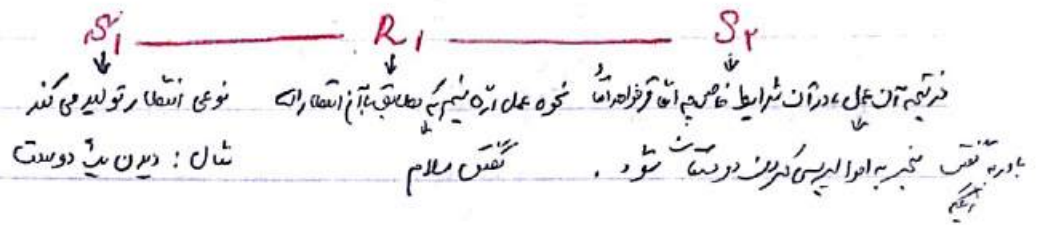 S₁ ــــــ R₁ ــــــ S₂
نوعی انتظار تولید می کند نحوه عمل که مطابق با آن انتظار است در نتیجه آن عمل، در آن شرایط خاص چه اتفاقی خواهد افتاد
مثال: دیدن یک دوست گفتن سلام منجر به احوالپرسی کردن دوستتان شود.